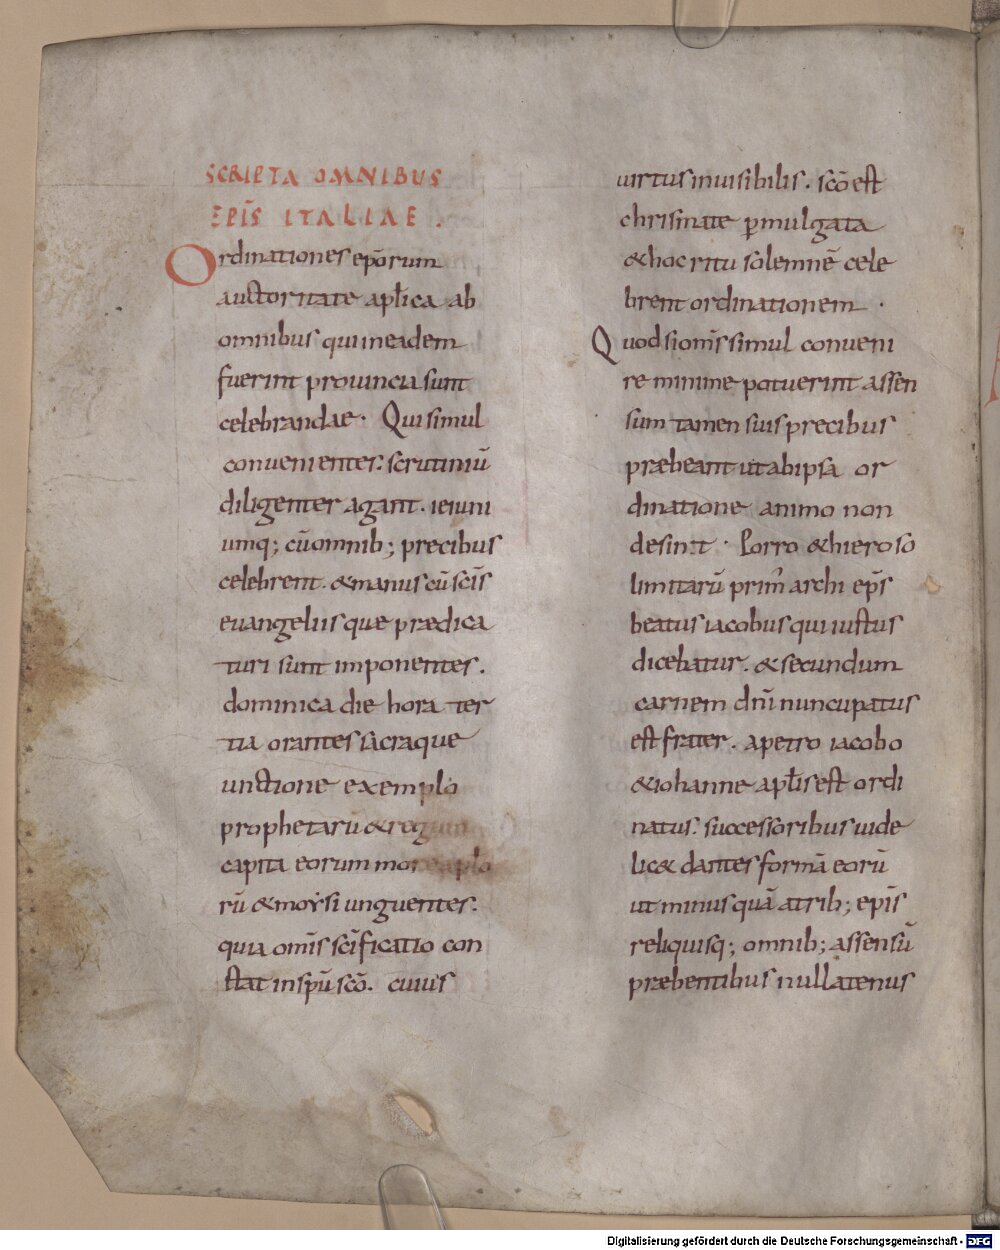 SCRIPTA OMNIBUS
EPIS̄ ITALIAE .
Ordinationes ep̄orum
auctoritate apl̄ica ab
omnibus qui in eadem
fuerint prouincia sunt
celebrandae · Qui simul
conuenientes. scrutiniū
diligenter agant · ieiuni
umq; cū omnib; precibus
celebrent · & manus cū sc̄is
euangeliis quae praedica
turi sunt imponentes .
dominica die hora ter
tia orantes sacraque
unctione exemplo
prophetarū & regum
capita eorum more aplo
rū & moysi unguentes.
quia om̄is sc̄ificatio con
stat in sp̄u sc̄o. cuius
uirtus inuisibilis · sc̄o est
chrismate ꝑmulgata
& hoc ritu solemnē cele
brent ordinationem ·
Quod si om̄s simul conueni
re minime potuerint assen
sum tamen suis precibus
praebeant ut ab ipsa or
dinatione animo non
desint · Porro & hieroso
limitarū prim̄ archi ep̄s
beatus iacobus qui iustus
dicebatur · & secundum
carnem dn̄i nuncupatus
est frater . a petro iacobo
& iohanne apl̄is est ordi
natus. successoribus uide
lic& dantes formā eorū
ut minus quā a trib; ep̄is
reliquisq; omnib; assensū
praebentibus nullatenus
Digitalisierung gefördert durch die Deutsche Forschungsgemeinschaft - DFG